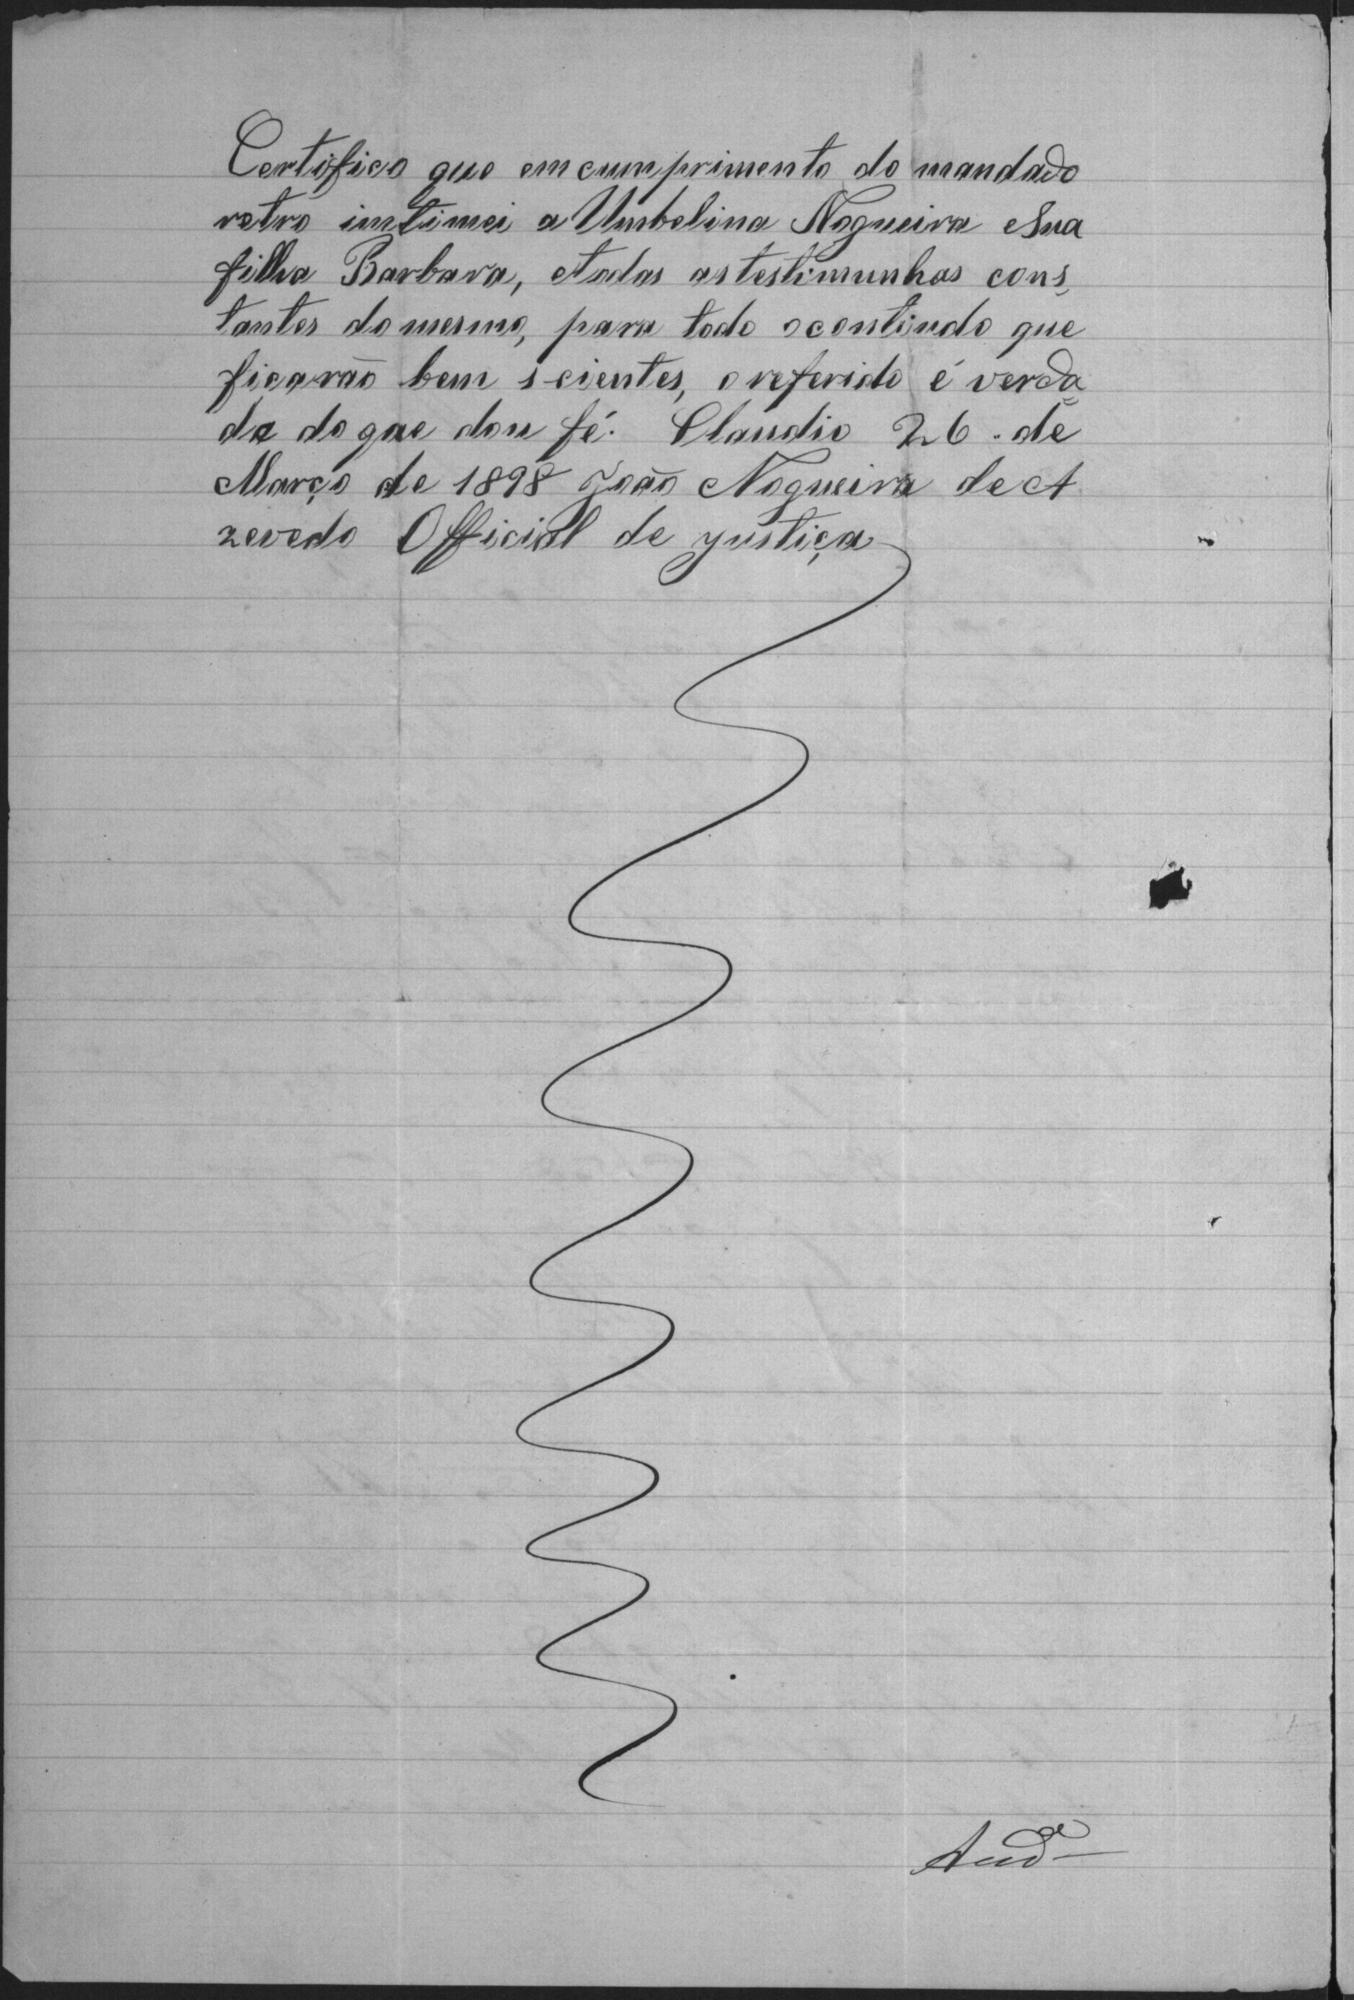 Certifico que em cumprimento do mandado
retro intimei a Umbelina Nogueira e Sua
filha Barbara, e todas as testimunhas cons,
tantes do mesmo, para todo o contiudo que
ficarão bem scientes, o referido é verda
da do que dou fé. Claudio 26. de
Março de 1898 João Nogueira de A
zevedo Official de justiça
And.e